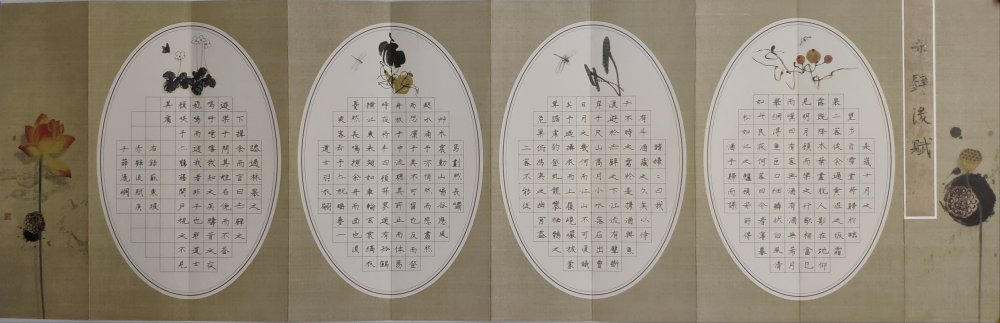 赤壁後賦
是歲十月之
望步自雪堂將歸於臨
皋二客從余過黃泥之坂霜
露既降木葉盡脫人影在地仰
見明月顧而樂之行歌相答已
而嘆曰有客無酒有酒無肴月
舉網得魚巨口細鱗狀似白風清
如此良夜何客曰今者薄暮
松江之鱸顧安所得
酒乎歸而謀
諸婦婦曰我
有斗酒藏之久矣以待
子不時之需於是攜酒與魚
復遊於赤壁之下江流有聲斷
岸千尺山高月小水落石出曾
日月之幾何而江山不可復識
矣予乃攝衣而上履巉巖披蒙
茸踞虎豹登虬龍攀栖鶻之
危巢俯馮夷之幽宮蓋
二客不能從
焉劃然長嘯
草木震動山鳴谷應風
起水涌予亦悄然而悲肅然
而恐凜乎其不可留也反而登
舟放乎中流聽其所止而休焉
時夜將半四顧寂寥適有孤鶴
橫江東來翅如車輪玄裳縞衣
戛然長鳴掠余舟而西也須
臾客去予亦就睡夢一
道士羽衣翩
躚過臨皋之
下揖余而言曰赤壁之
遊樂乎問其姓名俛而不答
嗚呼噫嘻我知之矣疇昔之夜
飛鳴而過我者非子也耶道士
顧笑予亦驚寤開戶視之不見
其處
右錄蘇東坡
赤壁後賦